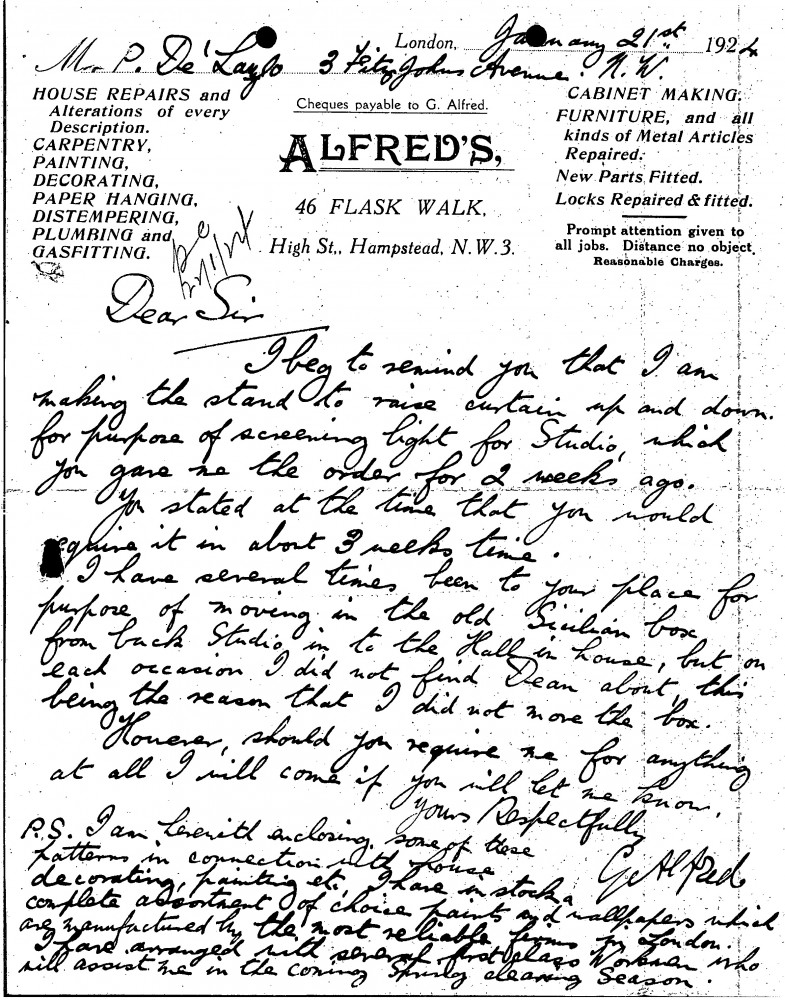 London, January 21st 1924
Mr P. De'Laszlo 3 Fitzjohns Avenue. N.W.
HOUSE REPAIRS and
Alterations of every
Description.
CARPENTRY,
PAINTING,
DECORATING,
PAPER HANGING,
DISTEMPERING,
PLUMBING and
GASFITTING.
Cheques payable to G. Alfred.
ALFRED'S,
46 FLASK WALK,
High St., Hampstead, N.W.3.
CABINET MAKING.
FURNITURE, and all
kinds of Metal Articles
Repaired.
New Parts Fitted.
Locks Repaired & fitted.
Prompt attention given to
all jobs. Distance no object.
Reasonable Charges.
22/1/24
Dear Sir
I beg to remind you that I am
making the stand to raise curtain up and down.
for purpose of screening light for Studio, which
you gave me the order for 2 weeks ago.
You stated at the time that you would
require it in about 3 weeks time.
I have several times been to your place for
purpose of moving in the old Sicilian box
from back Studio in to the Hall in house, but on
each occasion I did not find Dean about, this
being the reason that I did not move the box.
However, should you require me for anything
at all I will come if you will let me know.
Yours Respectfully
G. Alfred
P.S. I am herewith enclosing some of these
patterns in connection with house
decorating, painting etc, I have in stock a
complete assortment of choice paints and wallpapers which
are manufactured by the most reliable firms in London.
I have arranged with several first class Workmen who
will assist me in the coming Spring cleaning Season.